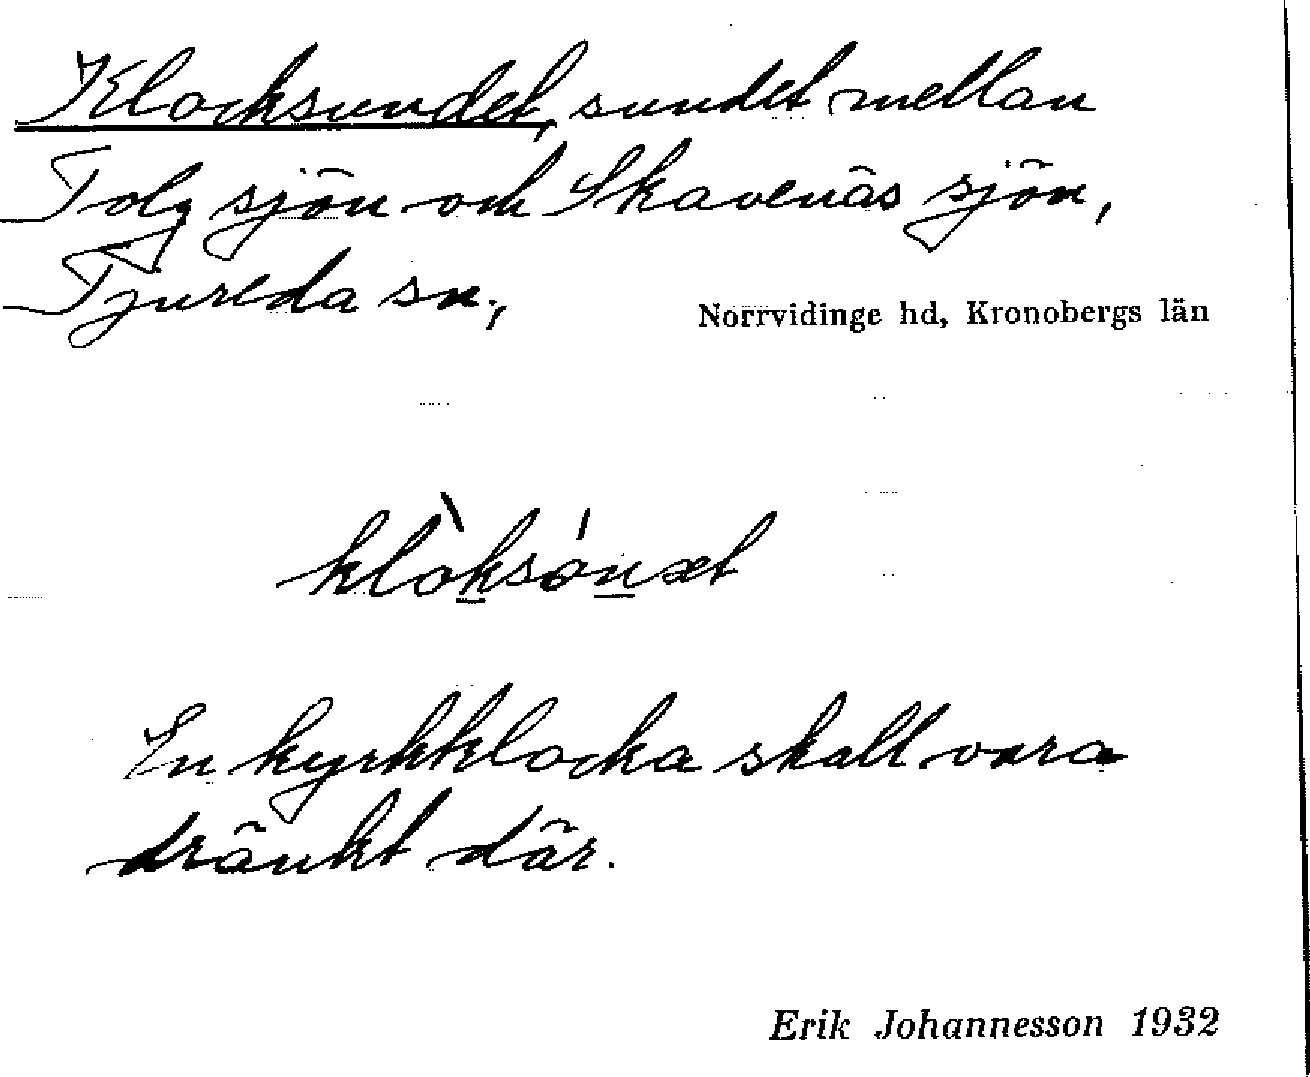 Klocksundet, sundet mellan
Tolg sjön och Skavenäs sjön,
Tjureda sn.,
Norrvidinge hd, Kronobergs län
klòksónæt
En kyrkklocka skall vara
dränkt där.
Erik Johannesson 1932